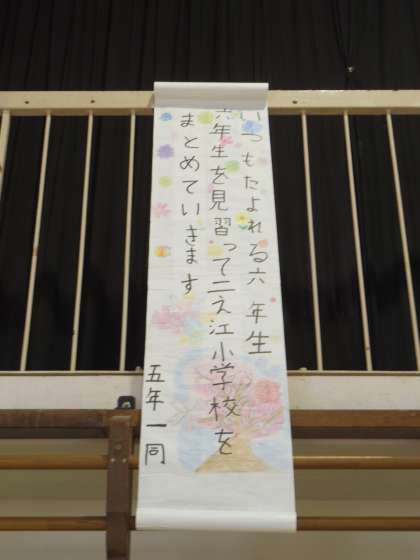 いつもたよれる六年生
六年生を見習って二え江小学校を
まとめていきます
五年一同